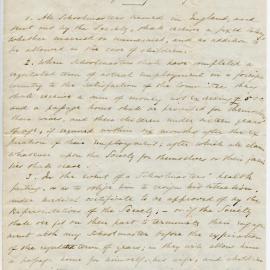 1. All Schoolmasters trained in England, and
sent out by the Society, shall receive a fixed salary
whether married or unmarried and no addition to
be allowed in the case of children.
2. When Schoolmasters shall have completed a
term of actual employment in a foreign
country to the satisfaction of the they
shall receive a sum of money not exceeding £
and a passage home shall be provided for them,
their wives, and their children under sixteen years
of age, if required within six months after the ex-
piration of their employment; after which all claim
whatever upon the Society for themselves or their fami-
lies shall cease.
3. In the event of a Schoolmaster's health
failing, so as to oblige him to resign his situation,
under medical certificate to be approved of by the
Representatives of the Society, or if the Society
shall see fit on their part to terminate their engage-
ment with any Schoolmaster before the expiration
of the term of years, they will allow him
a passage home for himself, his wife, and children